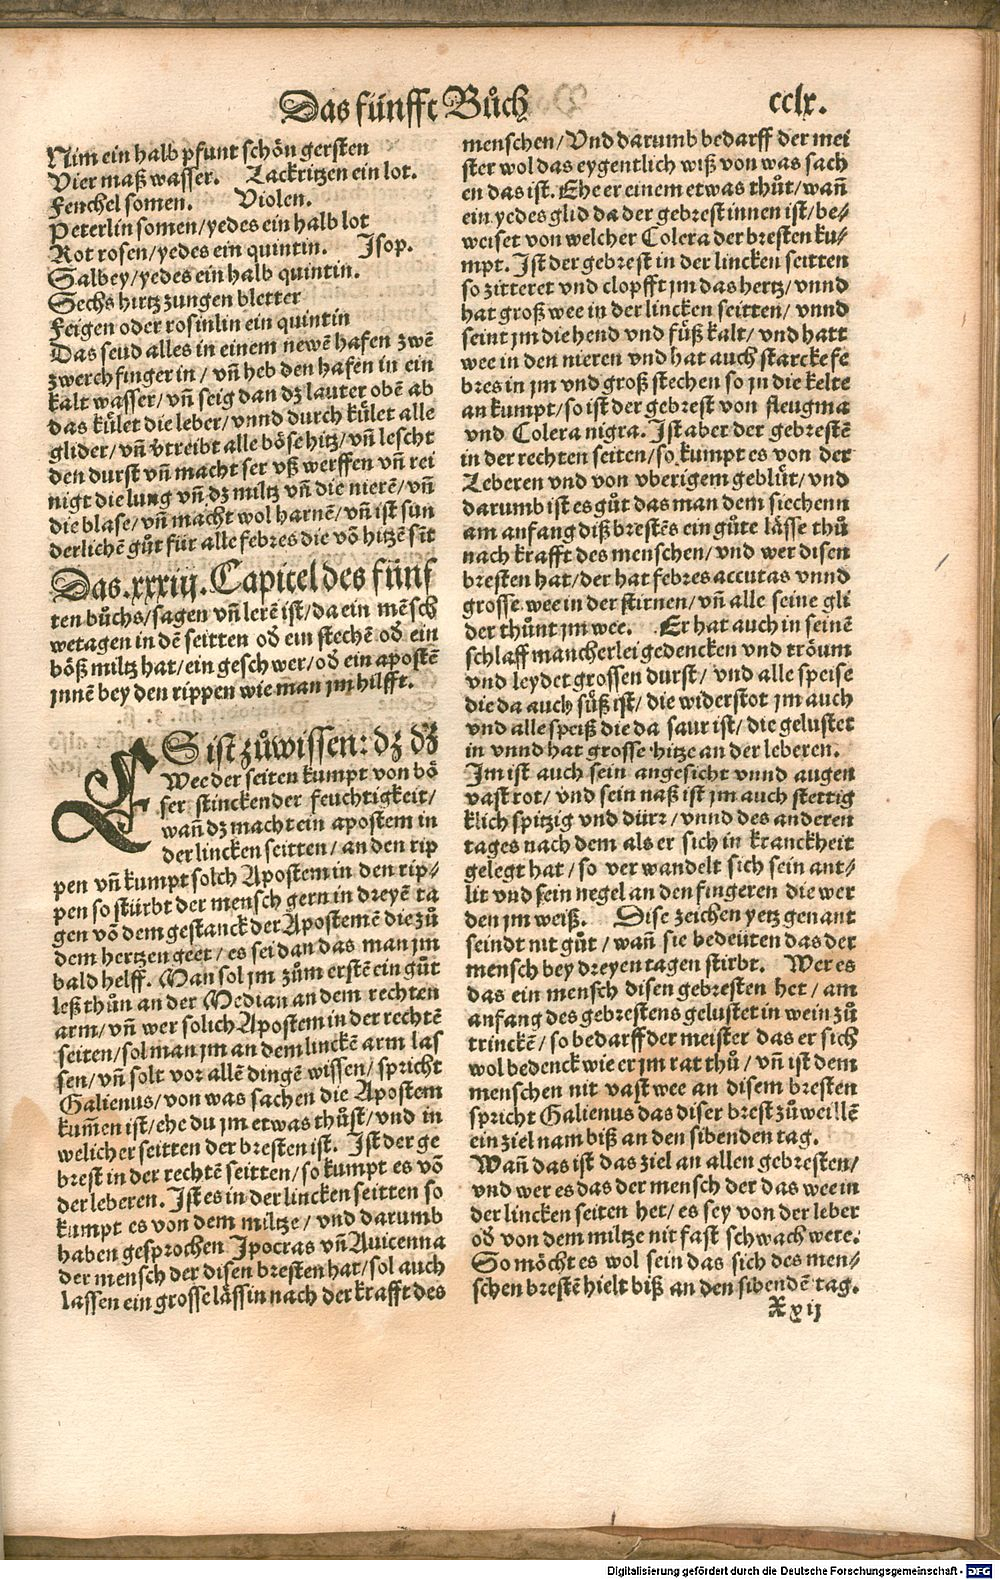 Das fünfft Bůch
cclx.
Nim ein halb pfunt schön gersten
Vier maß wasser. Lackritzen ein lot.
Fenchel somen. Violen.
Peterlin somen/yedes ein halb lot
Rot rosen/yedes ein quintin. Isop.
Salbey/yedes ein halb quintin.
Sechs hirtz zungen bletter
Feigen oder rosinlin ein quintin
Das seud alles in einem newẽ hafen zwẽ
zwerch finger in/ vñ heb den hafen in ein
kalt wasser/vñ seig dan dz lauter obẽ ab
das kület die leber/vnnd durch kület alle
glider/vñ v̈treibt alle böse hitz/vñ lescht
den durst vñ macht ser vß werffen vñ rei
nigt die lung vñ dz miltz vñ die nierẽ/vñ
die blase/vñ macht wol harnẽ/vñ ist sun
derlichẽ gůt für alle febres die võ hitzẽ sīt
Das .xxxiij. Capitel des fünf
ten bůchs/sagen vñ lerẽ ist/da ein mẽsch
wetagen in dẽ seitten od̕ ein stechẽ od̕ ein
böß miltz hat/ein geschwer/od̕ ein apostẽ
jnnẽ bey den rippen wie man jm hilfft.
ES ist zůwissen: dz dz
Wee der seiten kumpt von bö
ser stinckender feuchtigkeit/
wañ dz macht ein apostem in
der lincken seitten/ an den rip
pen vñ kumpt solch Apostem in den rip⸗
pen so stürbt der mensch gern in dreyẽ ta
gen võ dem gestanck der Apostemẽ die zů
dem hertzen geet/ es sei dan das man jm
bald helff. Man sol jm zům erstẽ ein gůt
leß thůn an der Median an dem rechten
arm/vñ wer solich Apostem in der rechtẽ
seiten/sol man jm an dem linckẽ arm las
sen/vñ solt vor allẽ dingẽ wissen/spricht
Galienus/von was sachen die Apostem
kum̃en ist/ehe du jm etwas thůst/vnd in
welicher seitten der bresten ist. Ist der ge
brest in der rechtẽ seitten/so kumpt es võ
der leberen. Ist es in der lincken seitten so
kumpt es von dem miltze/vnd darumb
haben gesprochen Ipocras vñ Auicenna
der mensch der disen bresten hat/sol auch
lassen ein grosse lässin nach der krafft des
menschen/Vnd darumb bedarff der mei
ster wol das eygentlich wiß von was sach
en das ist. Ehe er einem etwas thůt/wañ
ein yedes glid da der gebrest innen ist/be⸗
weiset von welcher Colera der bresten ku⸗
mpt. Ist der gebrest in der lincken seitten
so zitteret vnd clopfft jm das hertz/vnnd
hat groß wee in der lincken seitten/vnnd
seint jm die hend vnd füß kalt/vnd hatt
wee in den nieren vnd hat auch starcke fe
bres in jm vnd groß stechen so jn die kelte
an kumpt/so ist der gebrest von fleugma
vnd Colera nigra. Ist aber der gebrestẽ
in der rechten seiten/so kumpt es von der
Leberen vnd von vberigem geblüt/vnd
darumb ist es gůt das man dem siechenn
am anfang diß brestẽs ein gůte lässe thů
nach krafft des menschen/vnd wer disen
bresten hat/der hat febres accutas vnnd
grosse wee in der stirnen/vñ alle seine gli
der thůnt jm wee. Er hat auch in seinẽ
schlaff mancherlei gedencken vnd tröum
vnd leydet grossen durst/vnd alle speise
die da auch süß ist/die widerstot jm auch
vnd alle speiß die da saur ist/die gelustet
in vnnd hat grosse hitze an der leberen.
Im ist auch sein angesicht vnnd augen
vast rot/vnd sein naß ist jm auch stettig
klich spitzig vnd dürr/vnnd des anderen
tages nach dem als er sich in kranckheit
gelegt hat/so verwandelt sich sein ant⸗
lit vnd sein negel an den fingeren die wer
den jm weiß. Dise zeichen yetz genant
seindt nit gůt/wañ sie bedeüten das der
mensch bey dreyen tagen stirbt. Wer es
das ein mensch disen gebresten het/am
anfang des gebrestens gelustet in wein zů
trinckẽ/so bedarff der meister das er sich
wol bedenck wie er jm rat thů/vñ ist dem
menschen nit vast wee an disem bresten
spricht Galienus das diser brest zůweillẽ
ein ziel nam biß an den sibenden tag.
Wañ das ist das ziel an allen gebresten/
vnd wer es das der mensch der das wee in
der lincken seiten het/es sey von der leber
od̕ von dem miltze nit fast schwach were.
So möcht es wol sein das sich des men⸗
schen brestẽ hielt biß an den sibendẽ tag.
Xx ij
Digitalisierung gefördert durch die Deutsche Forschungsgemeinschaft - DFG